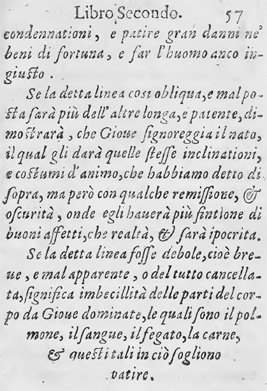 Libro Secondo. 57
condennationi, e patire gran danni ne'
beni di fortuna, e far l'huomo anco in-
giusto.
Se la detta linea così obliqua, e mal po-
sta sarà più dell'altre longa, e patente, di-
mostrarà, che Gioue signoreggia il nato,
il qual gli darà quelle stesse inclinationi,
e costumi d'animo, che habbiamo detto di
sopra, ma però con qualche remissione, &
oscurità, onde egli hauerà più fintione di
buoni affetti, che realtà, & sarà ipocrita.
Se la detta linea fosse debole, cioè bre-
ue, e mal apparente, o del tutto cancella-
ta, significa imbecillità delle parti del cor-
po da Gioue dominate, le quali sono il pol-
mone, il sangue, il fegato, la carne,
& questi tali in ciò sogliono
patire.